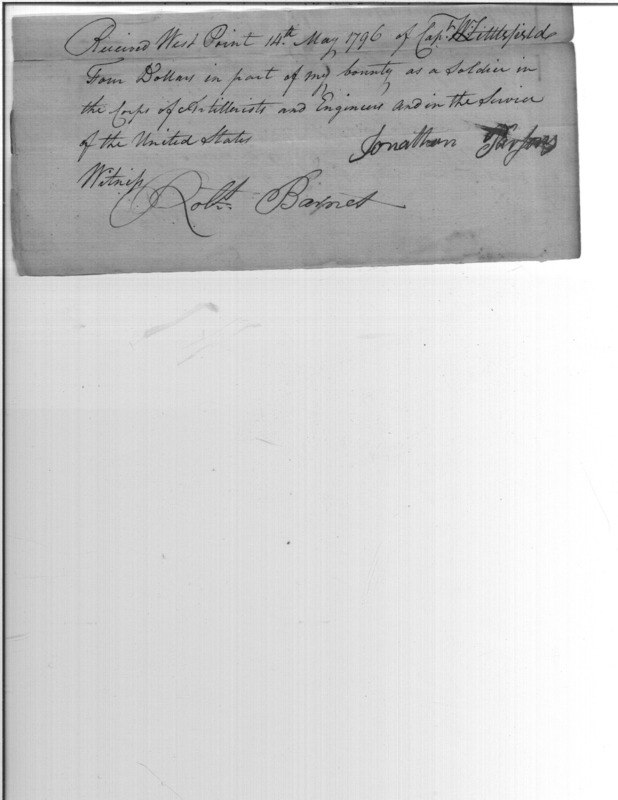 Received West Point 14th. May 1796 of Capt. W Littlefield
Four Dollars in part of my bounty as a Soldier in
the Corps of Artillerists and Engineers and in the Service
of the United States
Jonathan
Witness
Robt. Barnet